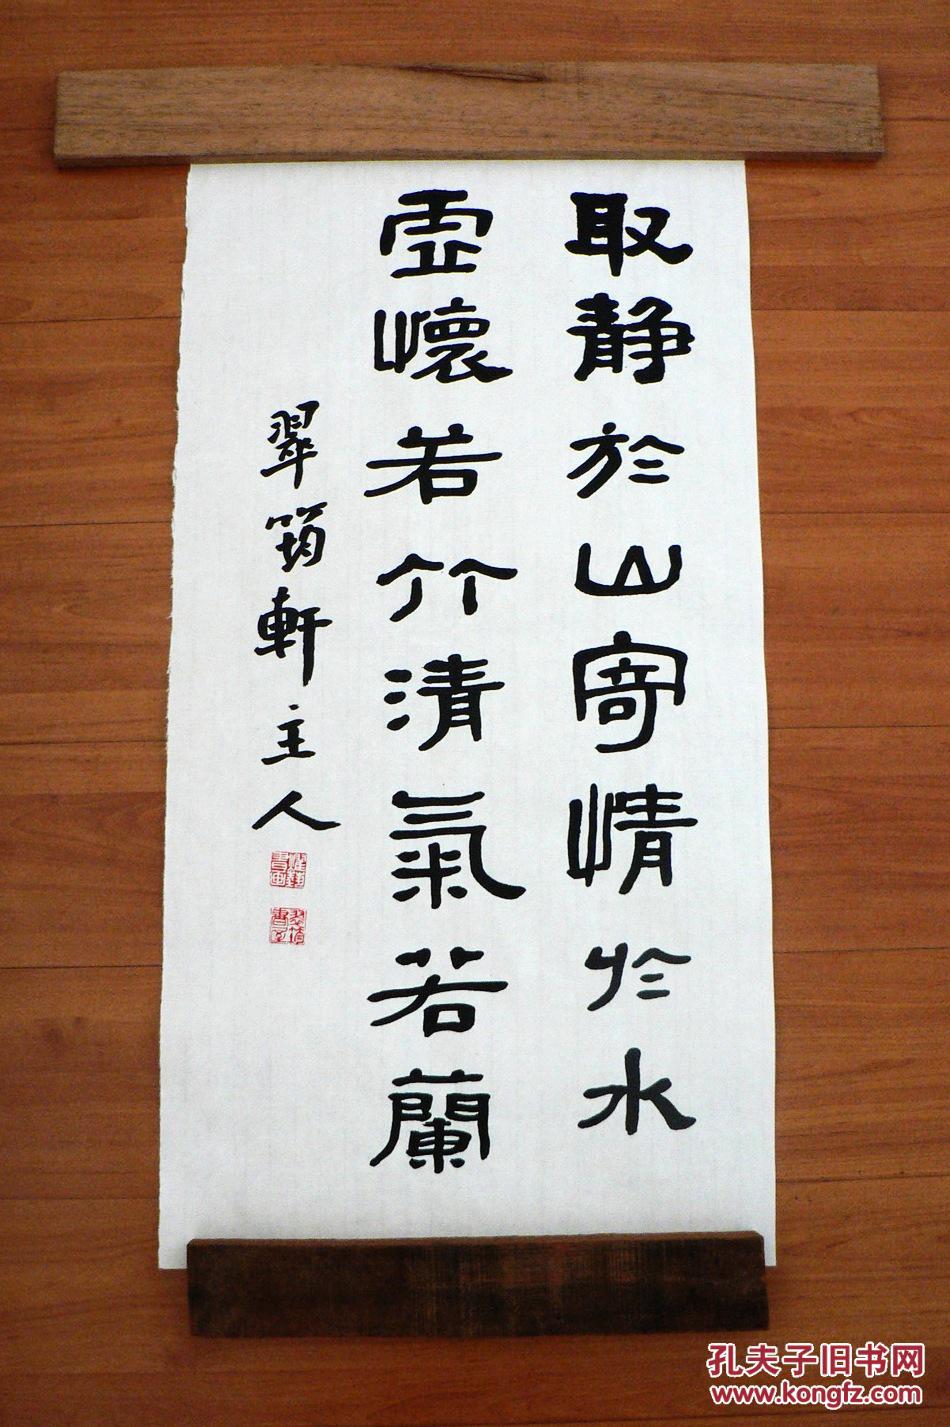 取静於山寄情於水
虚懷若竹清氣若蘭
翠筠軒主人
孔夫子旧书网
www.kongfz.com